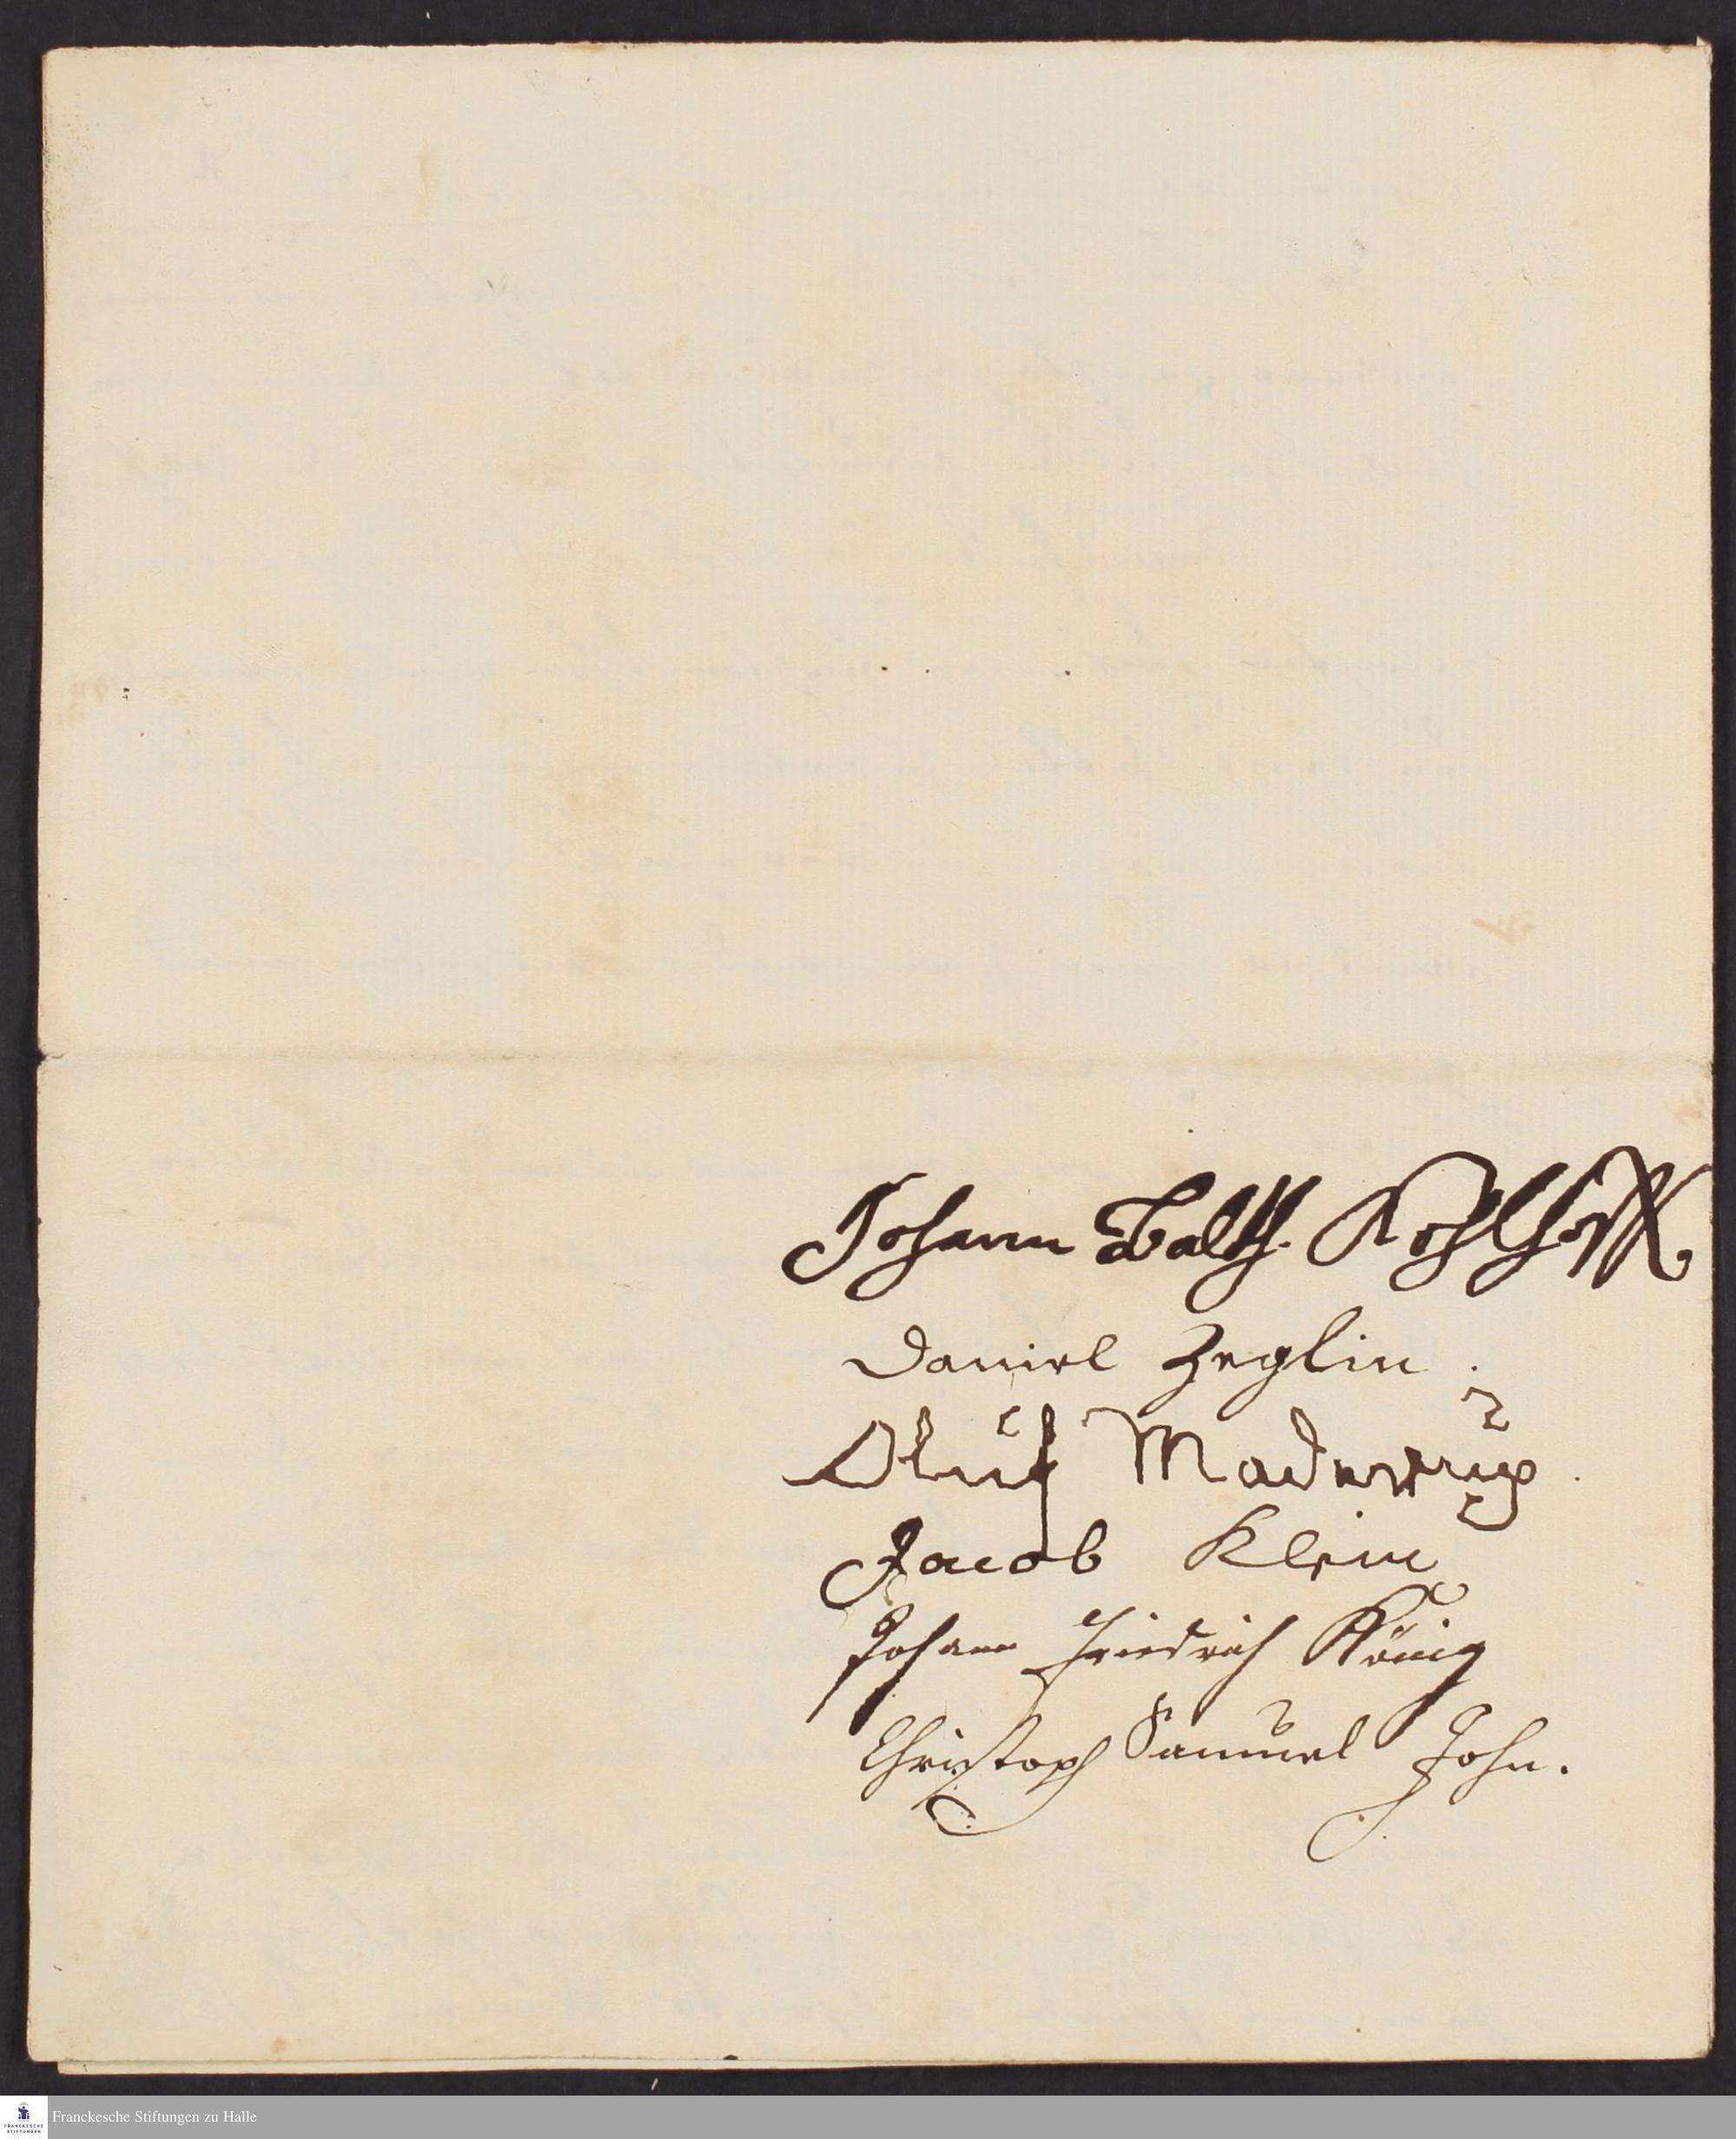 Johann Balth. Kohlhoff.
Daniel Zeglin.
Oluf Maderup.
Jacob Klein
Johann Friedrich König
Christoph Samuel John.
FRANCKESCHE
STIFTUNGEN
Franckesche Stiftungen zu Halle